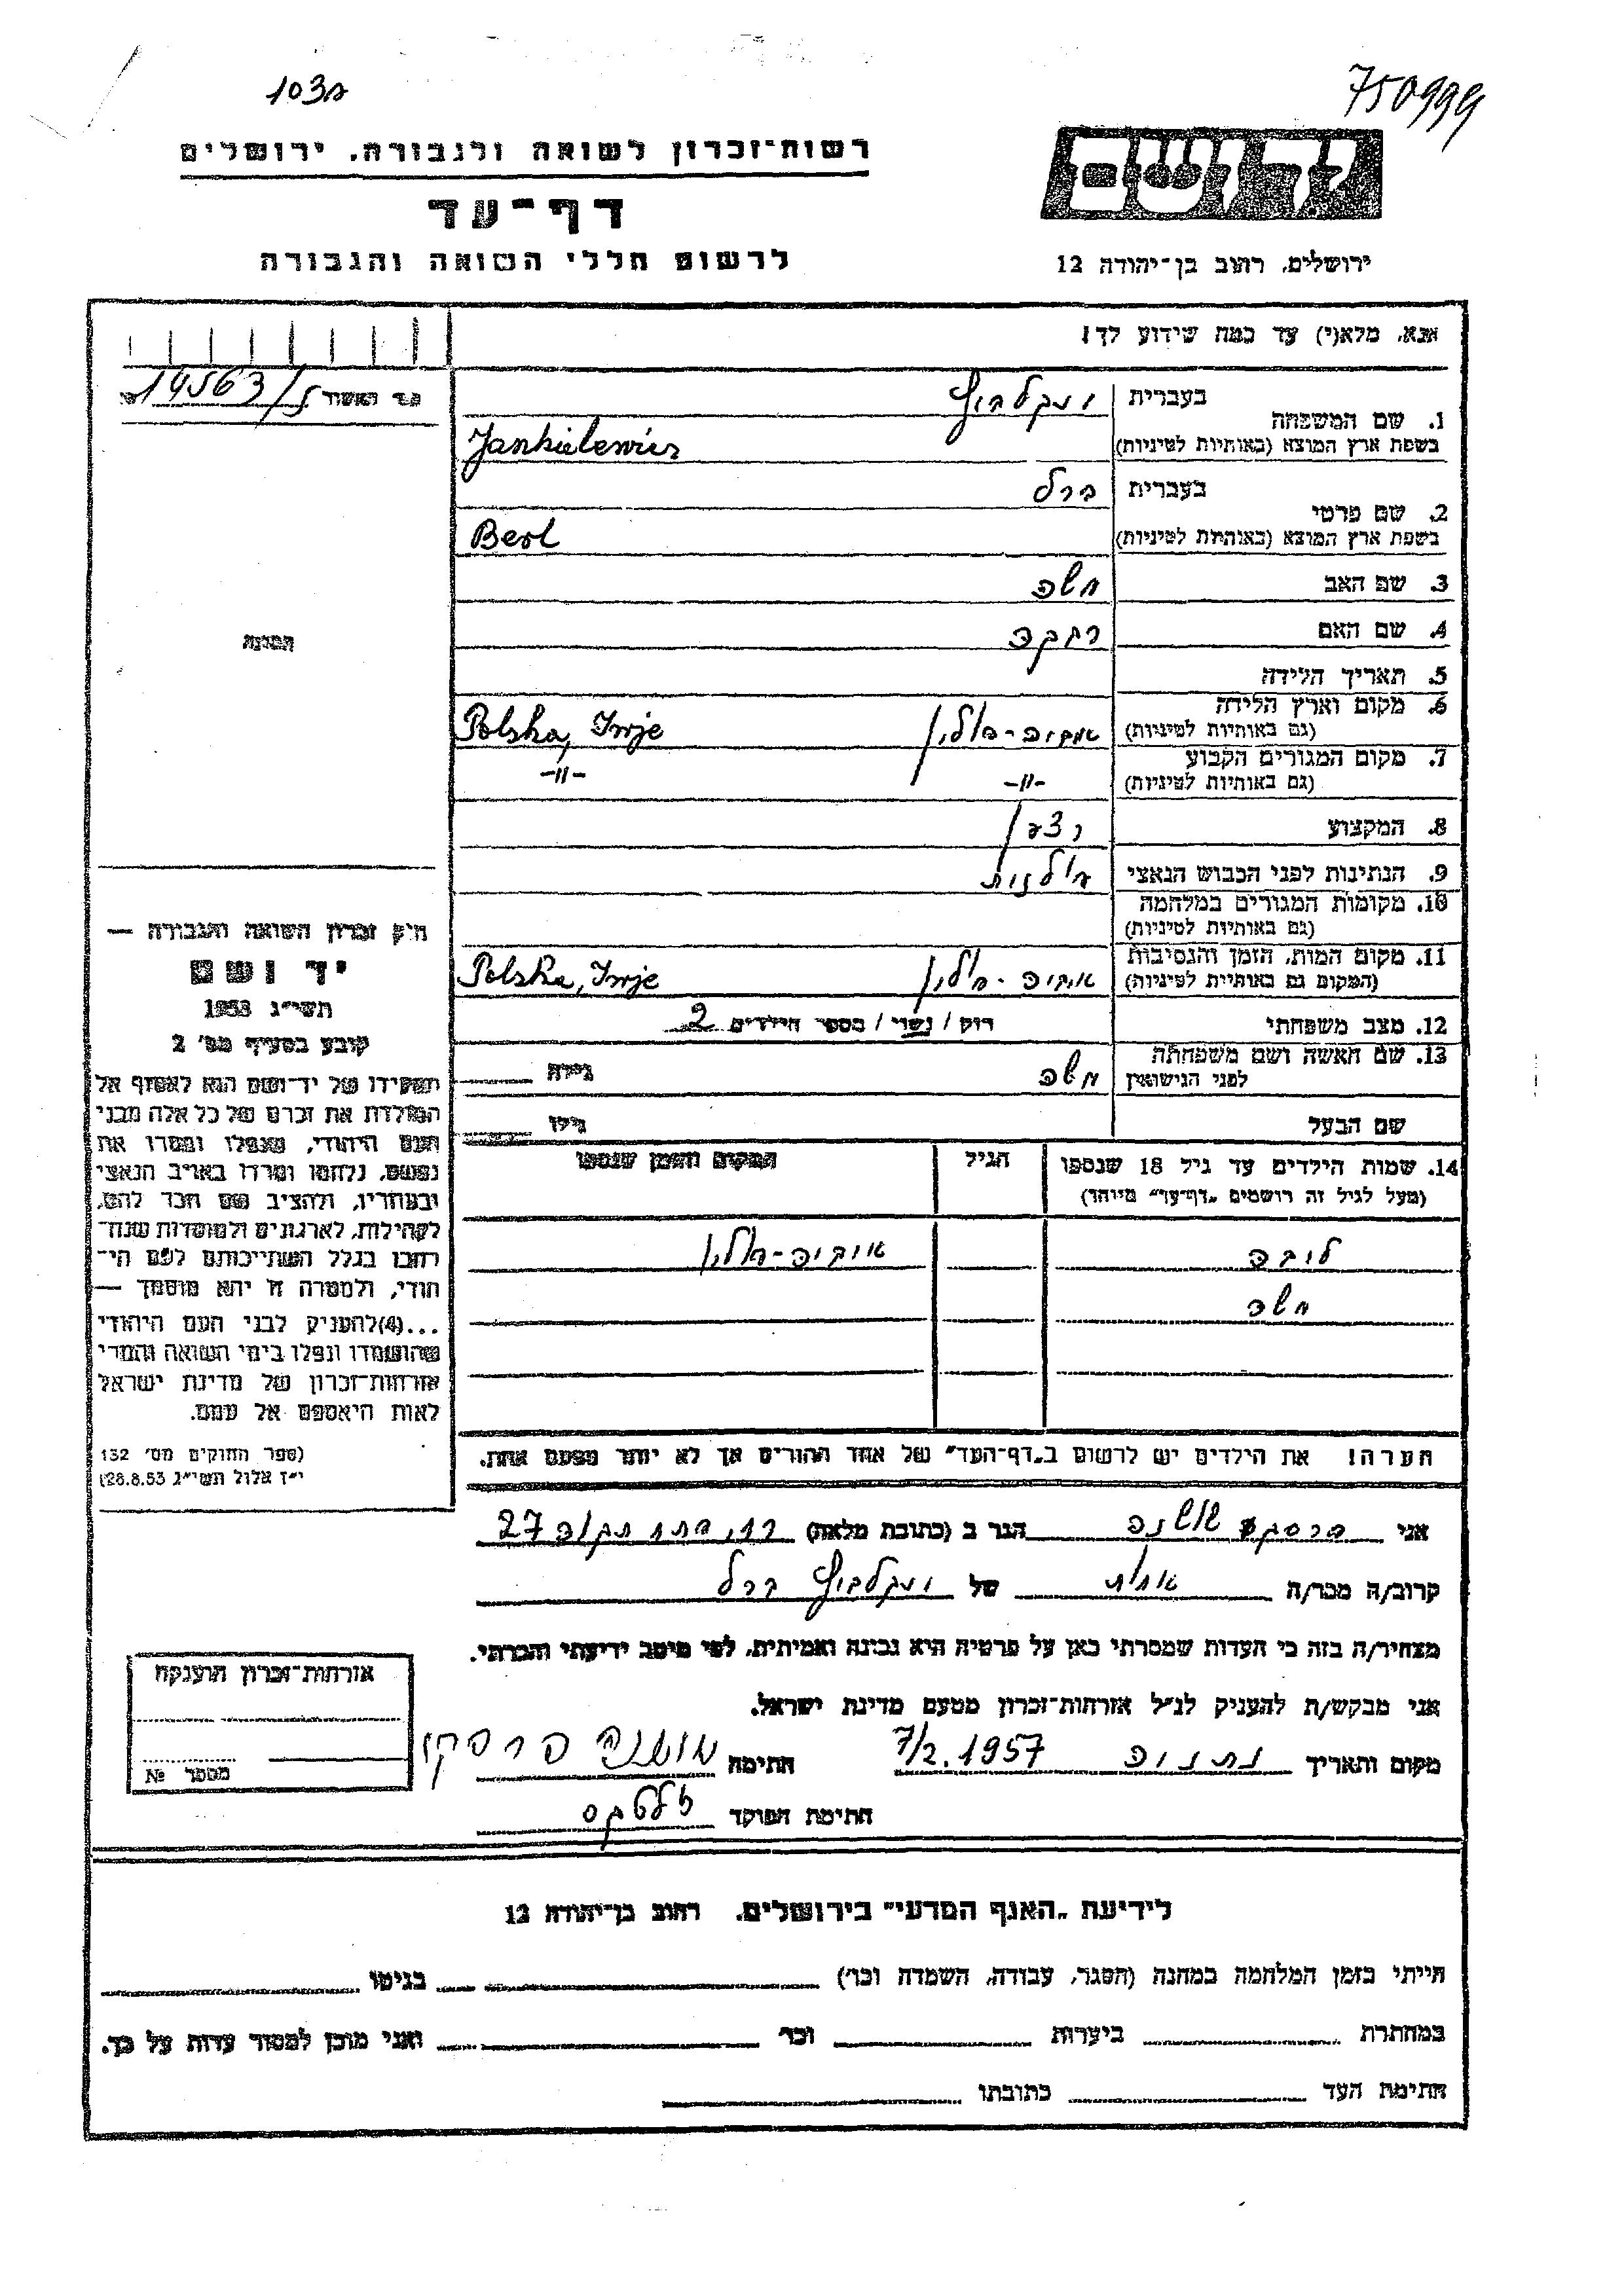 103a
750999
רשות־זכרון לשואה ולגבורה, ירושלים
דף־עד
לרשום חללי השואה והגבורה
ידושם
ירושלים, רחוב בן־יהודה 12
אנא, מלא(י) עד כמה שידוע לך!
14563/
1. שם המשפחה
בעברית
ינקלביץ
בשפת ארץ המוצא (באותיות לטיניות)
Jankielewicz
2. שם פרטי
בעברית
ברל
בשפת ארץ המוצא (באותיות לטיניות)
Berl
3. שם האב
משה
4. שם האם
רבקה
5. תאריך הלידה
6. מקום וארץ הלידה
(גם באותיות לטיניות)
פולין Polska, Iwje
7. מקום המגורים הקבוע
(גם באותיות לטיניות)
-"- -"-
8. המקצוע
9. הנתינות לפני הכבוש הנאצי
פולנית
10. מקומות המגורים במלחמה
(גם באותיות לטיניות)
11. מקום המות, הזמן והנסיבות
(המקום גם באותיות לטיניות)
איביה - פולין Polska, Iwje
12. מצב משפחתי
רוק / נשוי / מספר הילדים 2
13. שם האשה ושם משפחתה
לפני הנישואין
גילה
שם הבעל
גילו
14. שמות הילדים עד גיל 18 שנספו
(מעל לגיל זה רושמים „דף־עד" מיוחד)
הגיל
המקום והזמן שנספו
ליבה איביה - פולין
משה
הערה! את הילדים יש לרשום ב„דף־העד" של אחד ההורים אך לא יותר מפעם אחת.
חוק זכרון השואה והגבורה —
יד ושם
תשי"ג 1953
קובע בסעיף מס' 2
תפקידו של יד־ושם הוא לאסוף אל
המולדת את זכרם של כל אלה מבני
העם היהודי, שנפלו ומסרו את
נפשם, נלחמו ומרדו באויב הנאצי
ובעוזריו, ולהציב שם וזכר להם,
לקהילות, לארגונים ולמוסדות שנח־
רבו בגלל השתייכותם לעם הי־
הודי, ולמטרה זו יהא מוסמך —
...(4) להעניק לבני העם היהודי
שהושמדו ונפלו בימי השואה והמרי
אזרחות־זכרון של מדינת ישראל
לאות היאספם אל עמם.
(ספר החוקים מס' 132
י"ז אלול תשי"ג 28.8.53)
אני שושנה הגר ב (כתובת מלאה) 27
קרוב/ה מכר/ה אחות של ינקלביץ ברל
מצהיר/ה בזה כי העדות שמסרתי כאן על פרטיה היא נכונה ואמיתית, לפי מיטב ידיעתי והכרתי.
אני מבקש/ת להעניק לנ"ל אזרחות־זכרון מטעם מדינת ישראל.
מקום ותאריך נתניה 7/2.1957 חתימה
חתימת הפוקד
אזרחות־זכרון הוענקה
מספר №
לידיעת „האגף המדעי" בירושלים. רחוב בן־יהודה 12
הייתי בזמן המלחמה במחנה (הסגר, עבודה, השמדה וכו') בגיטו
במחתרת ביערות וכו' ואני מוכן למסור עדות על כך.
חתימת העד כתובתו